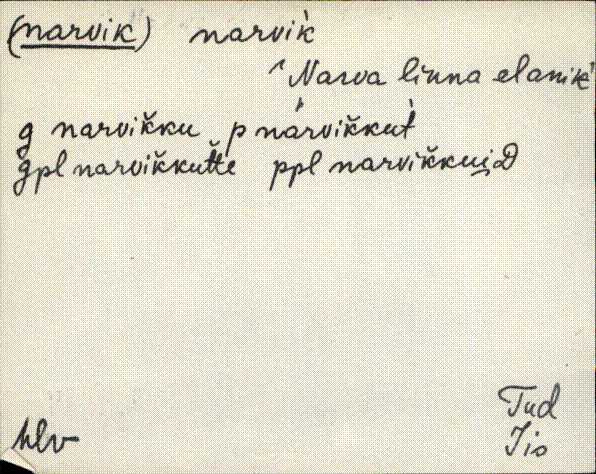 (narvik) narvik̀
ˊNarva linna elanikˋ
g narvik̆ku p nárvik̆kut̀
gpl narvik̆kut̆te ppl narvik̆kui̯D
hlv
Tud
Jio